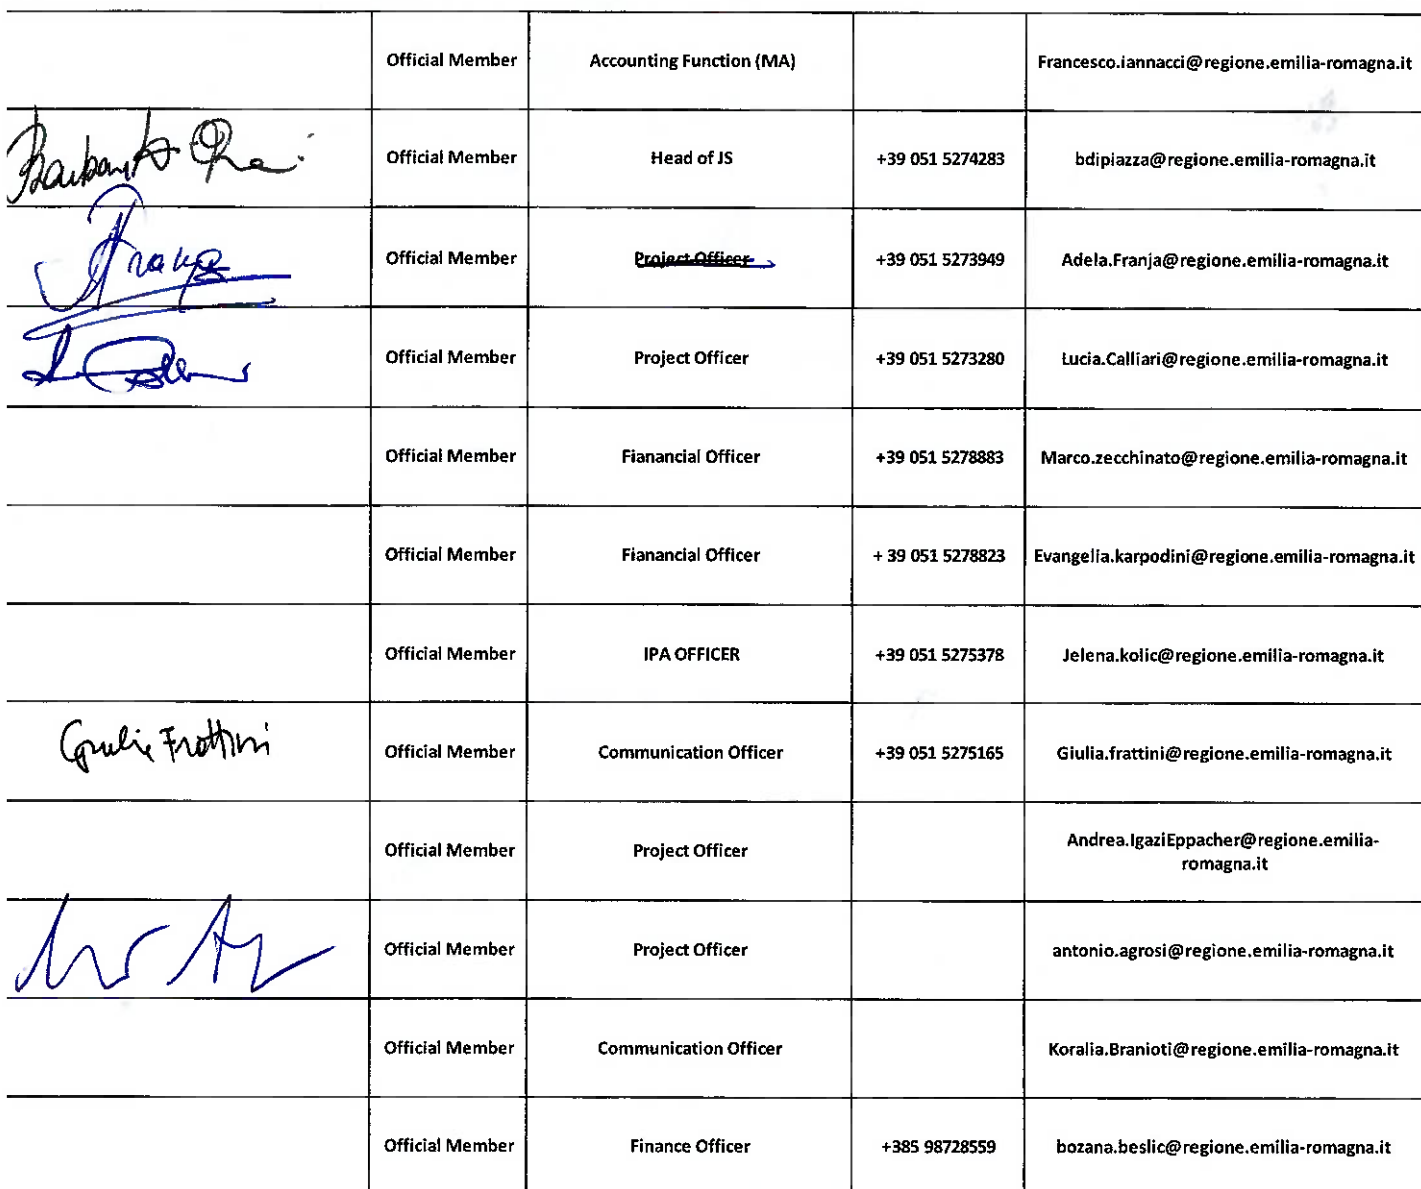 Official Member Accounting Function (MA) Francesco.iannacci@regione.emilia-romagna.it
Official Member Head of JS +39 051 5274283 bdipiazza@regione.emilia-romagna.it
Franja Official Member Project Officer +39 051 5273949 Adela.Franja@regione.emilia-romagna.it
Official Member Project Officer +39 051 5273280 Lucia.Calliari@regione.emilia-romagna.it
Official Member Fianancial Officer +39 051 5278883 Marco.zecchinato@regione.emilia-romagna.it
Official Member Fianancial Officer + 39 051 5278823 Evangelia.karpodini@regione.emilia-romagna.it
Official Member IPA OFFICER +39 051 5275378 Jelena.kolic@regione.emilia-romagna.it
Giulia Frattini Official Member Communication Officer +39 051 5275165 Giulia.frattini@regione.emilia-romagna.it
Official Member Project Officer Andrea.IgaziEppacher@regione.emilia-
romagna.it
Official Member Project Officer antonio.agrosi@regione.emilia-romagna.it
Official Member Communication Officer Koralia.Branioti@regione.emilia-romagna.it
Official Member Finance Officer +385 98728559 bozana.beslic@regione.emilia-romagna.it